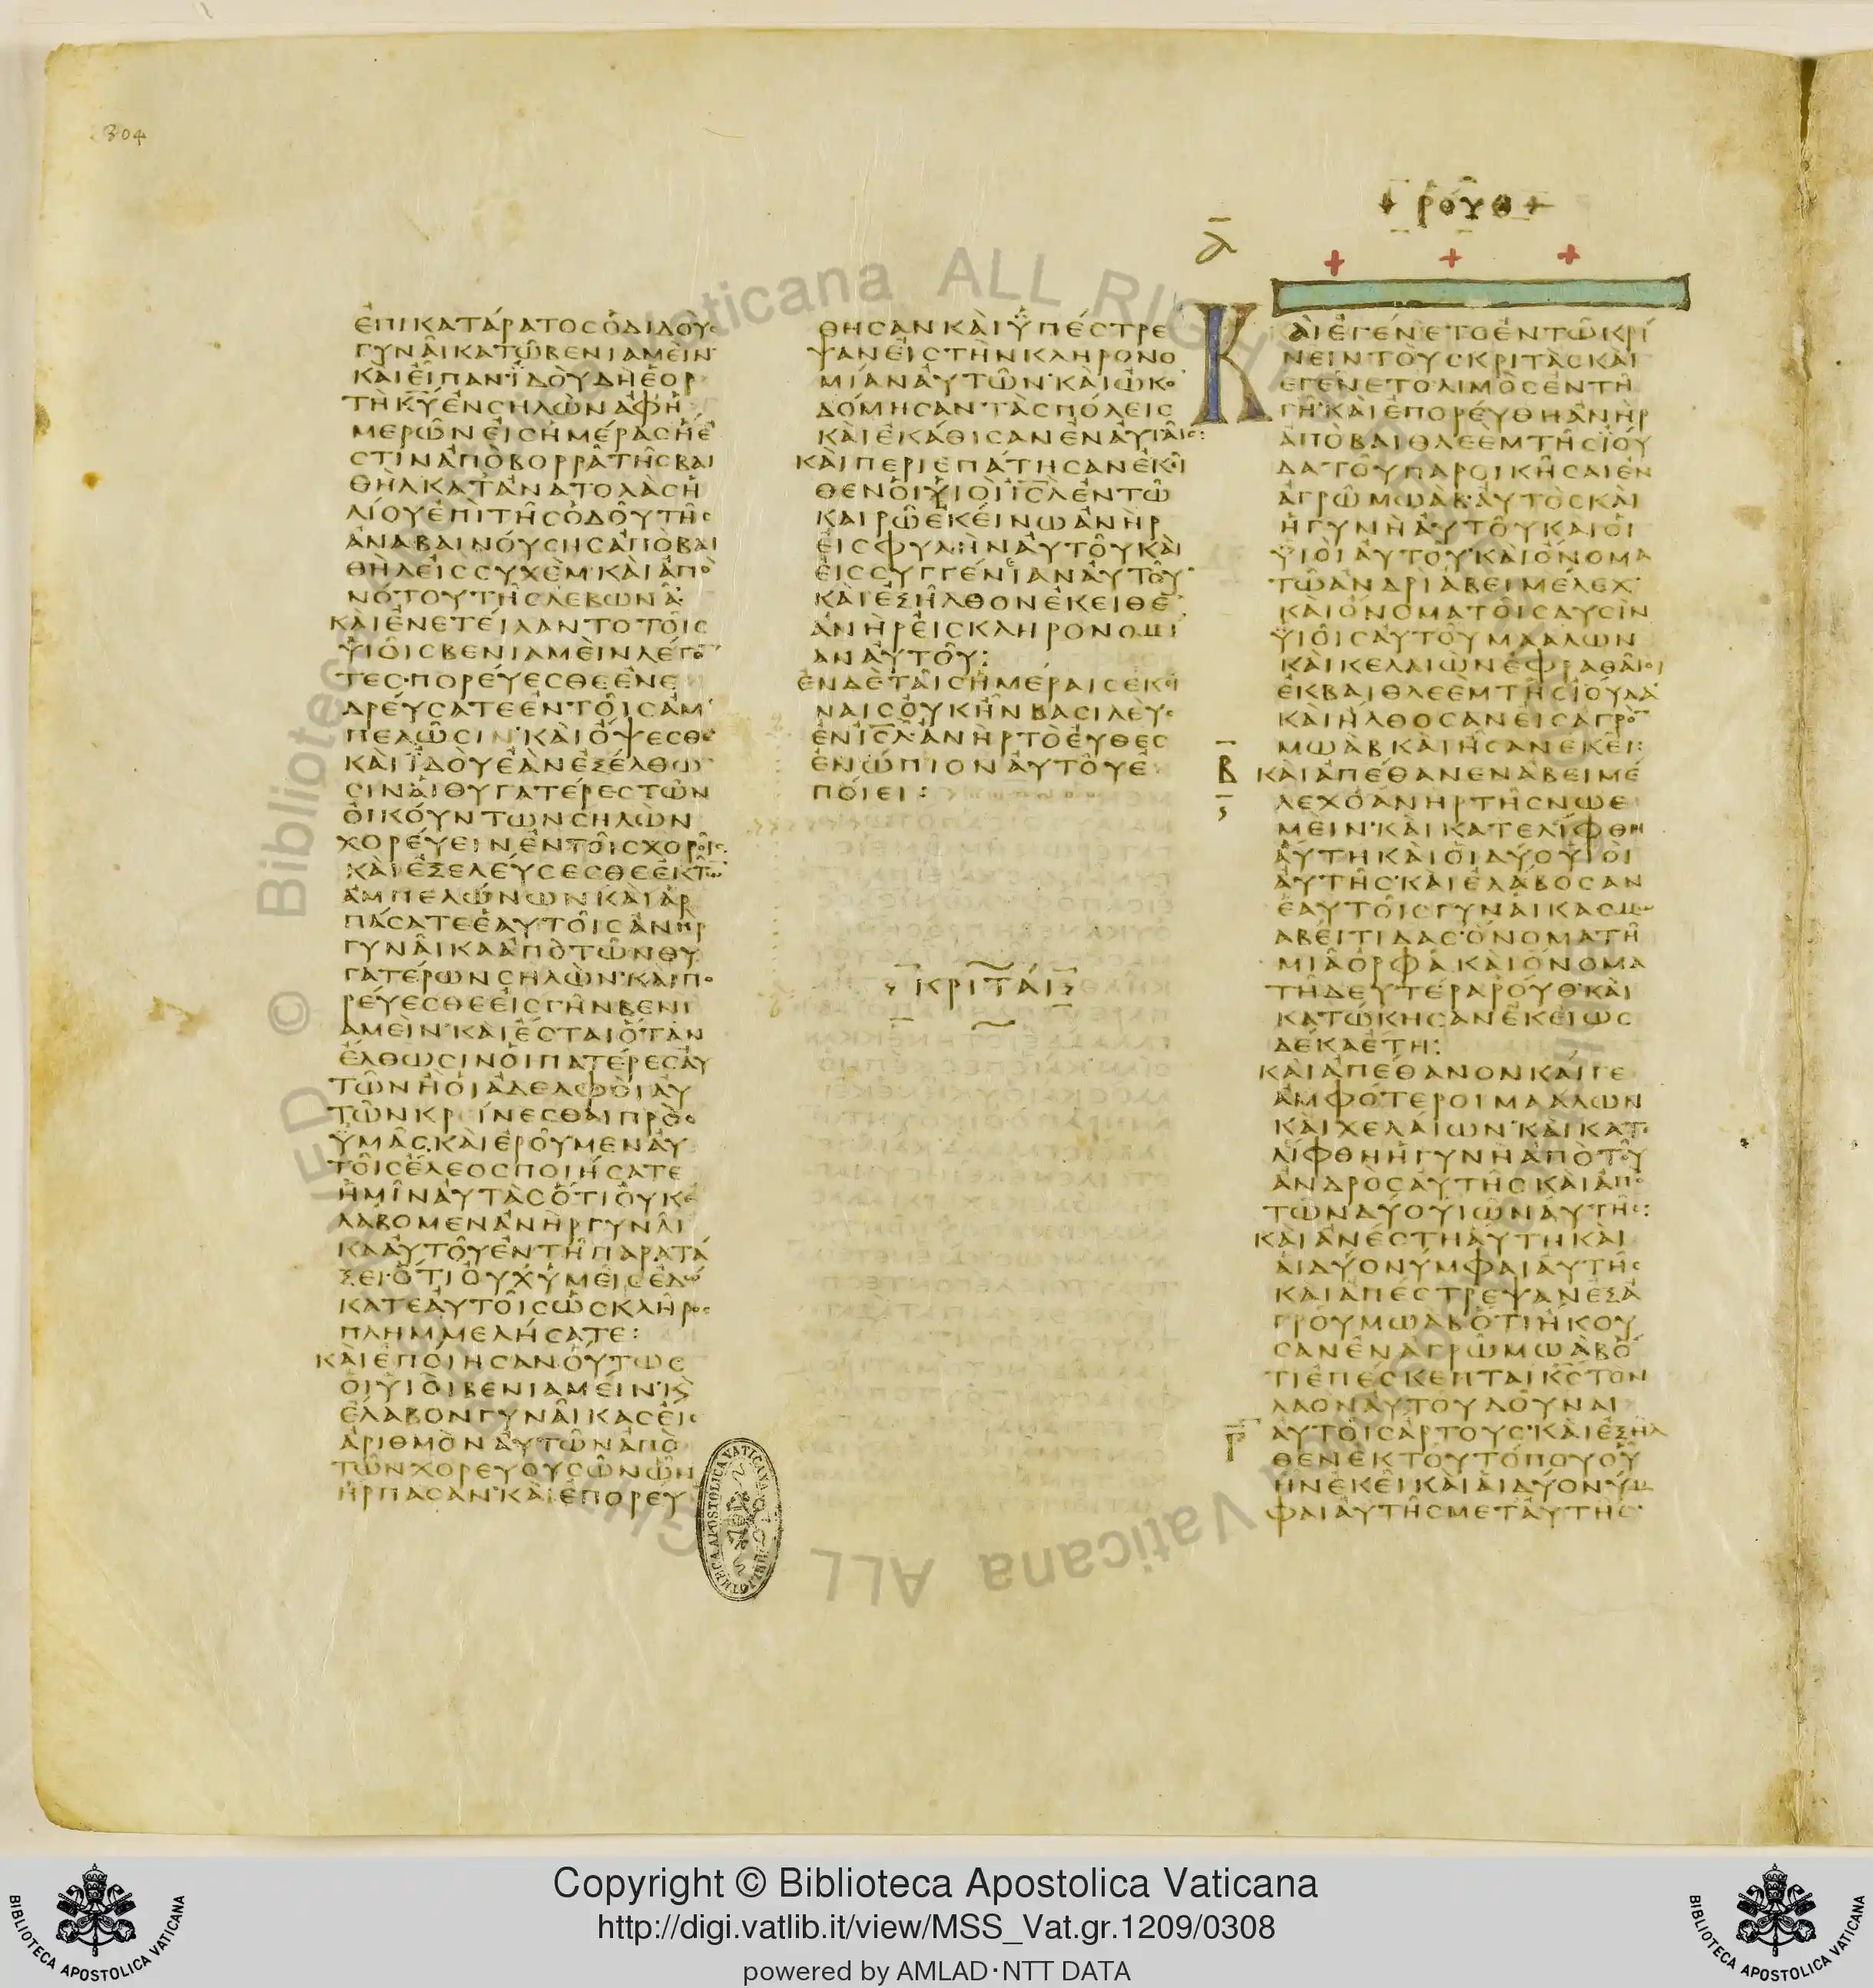 2304
ΕΠΙΚΑΤΑΡΑΤΟΣΟΔΙΔΟΥΣ
ΓΥΝΑΙΚΑΤΩΒΕΝΙΑΜΕΙΝ
ΚΑΙΕΙΠΑΝΙΔΟΥΔΗΕΟΡ
ΤΗΚΥΕΝΣΗΛΩΝΑΦΗ
ΜΕΡΩΝΕΙΣΗΜΕΡΑΣΗΕ
ΣΤΙΝΑΠΟΒΟΡΡΑΤΗΣΒΑΙ
ΘΗΛΚΑΤΑΝΑΤΟΛΑΣΗ
ΛΙΟΥΕΠΙΤΗΣΟΔΟΥΤΗΣ
ΑΝΑΒΑΙΝΟΥΣΗΣΑΠΟΒΑΙ
ΘΗΛΕΙΣΣΥΧΕΜΚΑΙΑΠΟ
ΝΟΤΟΥΤΗΣΛΕΒΩΝΑ
ΚΑΙΕΝΕΤΕΙΛΑΝΤΟΤΟΙΣ
ΥΙΟΙΣΒΕΝΙΑΜΕΙΝΛΕΓΟ
ΤΕΣΠΟΡΕΥΕΣΘΕΕΝΕ
ΔΡΕΥΣΑΤΕΕΝΤΟΙΣΑΜ
ΠΕΛΩΣΙΝΚΑΙΟΨΕΣΘΕ
ΚΑΙΙΔΟΥΕΑΝΕΞΕΛΘΩ
ΣΙΝΑΙΘΥΓΑΤΕΡΕΣΤΩΝ
ΟΙΚΟΥΝΤΩΝΣΗΛΩΝ
ΧΟΡΕΥΕΙΝΕΝΤΟΙΣΧΟΡΟΙΣ
ΚΑΙΕΞΕΛΕΥΣΕΣΘΕΕΚΤΩ
ΑΜΠΕΛΩΝΩΝΚΑΙΑΡ
ΠΑΣΑΤΕΕΑΥΤΟΙΣΑΝΗΡ
ΓΥΝΑΙΚΑΑΠΟΤΩΝΘΥ
ΓΑΤΕΡΩΝΣΗΛΩΝΚΑΙΠΟ
ΡΕΥΕΣΘΕΕΙΣΓΗΝΒΕΝΙ
ΑΜΕΙΝΚΑΙΕΣΤΑΙΟΤΑΝ
ΕΛΘΩΣΙΝΟΙΠΑΤΕΡΕΣΑΥ
ΤΩΝΗΟΙΑΔΕΛΦΟΙΑΥ
ΤΩΝΚΡΙΝΕΣΘΑΙΠΡΟΣ
ΥΜΑΣΚΑΙΕΡΟΥΜΕΝΑΥ
ΤΟΙΣΕΛΕΟΣΠΟΙΗΣΑΤΕ
ΗΜΙΝΑΥΤΑΣΟΤΙΟΥΚΕ
ΛΑΒΟΜΕΝΑΝΗΡΓΥΝΑΙ
ΚΑΑΥΤΟΥΕΝΤΗΠΑΡΑΤΑ
ΞΕΙΟΤΙΟΥΧΥΜΕΙΣΕΔΩ
ΚΑΤΕΑΥΤΟΙΣΩΣΚΛΗΡΟΣ
ΠΛΗΜΜΕΛΗΣΑΤΕ:
ΚΑΙΕΠΟΙΗΣΑΝΟΥΤΩΣ
ΟΙΥΙΟΙΒΕΝΙΑΜΕΙΝΚ
ΕΛΑΒΟΝΓΥΝΑΙΚΑΣΕΙΣ
ΑΡΙΘΜΟΝΑΥΤΩΝΑΠΟ
ΤΩΝΧΟΡΕΥΟΥΣΩΝΩΝ
ΗΡΠΑΣΑΝΚΑΙΕΠΟΡΕΥ
ΘΗΣΑΝΚΑΙΥΠΕΣΤΡΕ
ΨΑΝΕΙΣΤΗΝΚΛΗΡΟΝΟ
ΜΙΑΝΑΥΤΩΝΚΑΙΩΚΟ
ΔΟΜΗΣΑΝΤΑΣΠΟΛΕΙΣ
ΚΑΙΕΚΑΘΙΣΑΝΕΝΑΥΤΑΙΣ:
ΚΑΙΠΕΡΙΕΠΑΤΗΣΑΝΕΚΕΙ
ΘΕΝΟΙΥΙΟΙΙΣΛΕΝΤΩ
ΚΑΙΡΩΕΚΕΙΝΩΑΝΗΡ
ΕΙΣΦΥΛΗΝΑΥΤΟΥΚΑΙ
ΕΙΣΣΥΓΓΕΝΙΑΝΑΥΤΟΥ
ΚΑΙΕΞΗΛΘΟΝΕΚΕΙΘΕ
ΑΝΗΡΕΙΣΚΛΗΡΟΝΟΜΙ
ΑΝΑΥΤΟΥ:
ΕΝΔΕΤΑΙΣΗΜΕΡΑΙΣΕΚΕΙ
ΝΑΙΣΟΥΚΗΝΒΑΣΙΛΕΥΣ
ΕΝΙΣΛΑΝΗΡΤΟΕΥΘΕΣ
ΕΝΩΠΙΟΝΑΥΤΟΥΕ
ΠΟΙΕΙ:
ΚΡΙΤΑΙ
ΡΟΥΘ
Α
ΚΑΙΕΓΕΝΕΤΟΕΝΤΩΚΡΙ
ΝΕΙΝΤΟΥΣΚΡΙΤΑΣΚΑΙ
ΕΓΕΝΕΤΟΛΙΜΟΣΕΝΤΗ
ΓΗΚΑΙΕΠΟΡΕΥΘΗΑΝΗΡ
ΑΠΟΒΑΙΘΛΕΕΜΤΗΣΙΟΥ
ΔΑΤΟΥΠΑΡΟΙΚΗΣΑΙΕΝ
ΑΓΡΩΜΩΑΒΑΥΤΟΣΚΑΙ
ΗΓΥΝΗΑΥΤΟΥΚΑΙΟΙ
ΥΙΟΙΑΥΤΟΥΚΑΙΟΝΟΜΑ
ΤΩΑΝΔΡΙΑΒΕΙΜΕΛΕΧ
ΚΑΙΟΝΟΜΑΤΟΙΣΔΥΣΙΝ
ΥΙΟΙΣΑΥΤΟΥΜΑΑΛΩΝ
ΚΑΙΚΕΛΑΙΩΝΕΦΡΑΘΑΙΟΙ
ΕΚΒΑΙΘΛΕΕΜΤΗΣΙΟΥΔΑ
ΚΑΙΗΛΘΟΣΑΝΕΙΣΑΓΡΟ
ΜΩΑΒΚΑΙΗΣΑΝΕΚΕΙ:
Β
ΚΑΙΑΠΕΘΑΝΕΝΑΒΕΙΜΕ
ΛΕΧΟΑΝΗΡΤΗΣΝΩΕ
ΜΕΙΝΚΑΙΚΑΤΕΛΙΦΘΗ
ΑΥΤΗΚΑΙΟΙΔΥΟΥΙΟΙ
ΑΥΤΗΣΚΑΙΕΛΑΒΟΣΑΝ
ΕΑΥΤΟΙΣΓΥΝΑΙΚΑΣΜΩ
ΑΒΕΙΤΙΔΑΣΟΝΟΜΑΤΗ
ΜΙΑΟΡΦΑΚΑΙΟΝΟΜΑ
ΤΗΔΕΥΤΕΡΑΡΟΥΘΚΑΙ
ΚΑΤΩΚΗΣΑΝΕΚΕΙΩΣ
ΔΕΚΑΕΤΗ:
ΚΑΙΑΠΕΘΑΝΟΝΚΑΙΓΕ
ΑΜΦΟΤΕΡΟΙΜΑΑΛΩΝ
ΚΑΙΧΕΛΑΙΩΝΚΑΙΚΑΤΕ
ΛΙΦΘΗΗΓΥΝΗΑΠΟΤΟΥ
ΑΝΔΡΟΣΑΥΤΗΣΚΑΙΑΠΟ
ΤΩΝΔΥΟΥΙΩΝΑΥΤΗΣ:
ΚΑΙΑΝΕΣΤΗΑΥΤΗΚΑΙ
ΑΙΔΥΟΝΥΜΦΑΙΑΥΤΗΣ
ΚΑΙΑΠΕΣΤΡΕΨΑΝΕΞΑ
ΓΡΟΥΜΩΑΒΟΤΙΗΚΟΥ
ΣΑΝΕΝΑΓΡΩΜΩΑΒΟ
ΤΙΕΠΕΣΚΕΠΤΑΙΚΣΤΟΝ
ΛΑΟΝΑΥΤΟΥΔΟΥΝΑΙ
Γ
ΑΥΤΟΙΣΑΡΤΟΥΣΚΑΙΕΞΗΛ
ΘΕΝΕΚΤΟΥΤΟΠΟΥΟΥ
ΗΝΕΚΕΙΚΑΙΑΙΔΥΟΝΥΜ
ΦΑΙΑΥΤΗΣΜΕΤΑΥΤΗΣ
Copyright © Biblioteca Apostolica Vaticana
http://digi.vatlib.it/view/MSS_Vat.gr.1209/0308
powered by AMLAD·NTT DATA
BIBLIOTECA APOSTOLICA VATICANA
BIBLIOTECA APOSTOLICA VATICANA